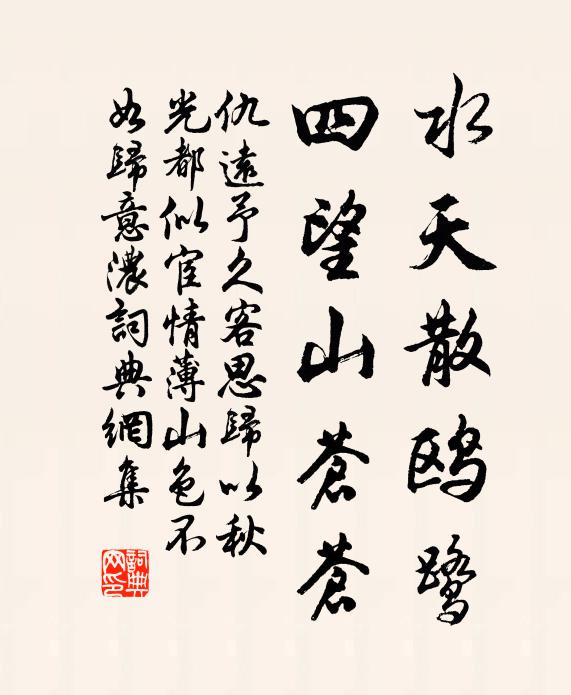 水天散鸥鹭
四望山苍苍
仇遠予久客思歸以秋
光都似宦情薄山色不
如歸意濃詞典網集
詞典网印